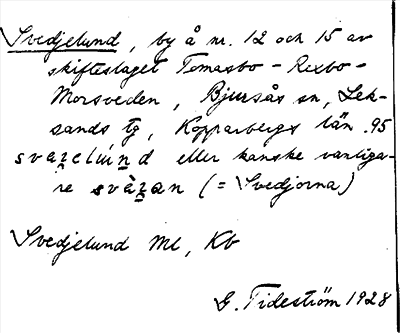 Svedjelund, by å nr. 12 och 15 av
skifteslaget Tomasbo - Rexbo -
Morsveden, Bjursås sn, Lek-
sands tg, Kopparbergs län. 95
svaʒelúnd eller kanske vanliga-
re svàʒan (= Svedjorna)
Svedjelund Ml, Kb
G. Tideström 1928